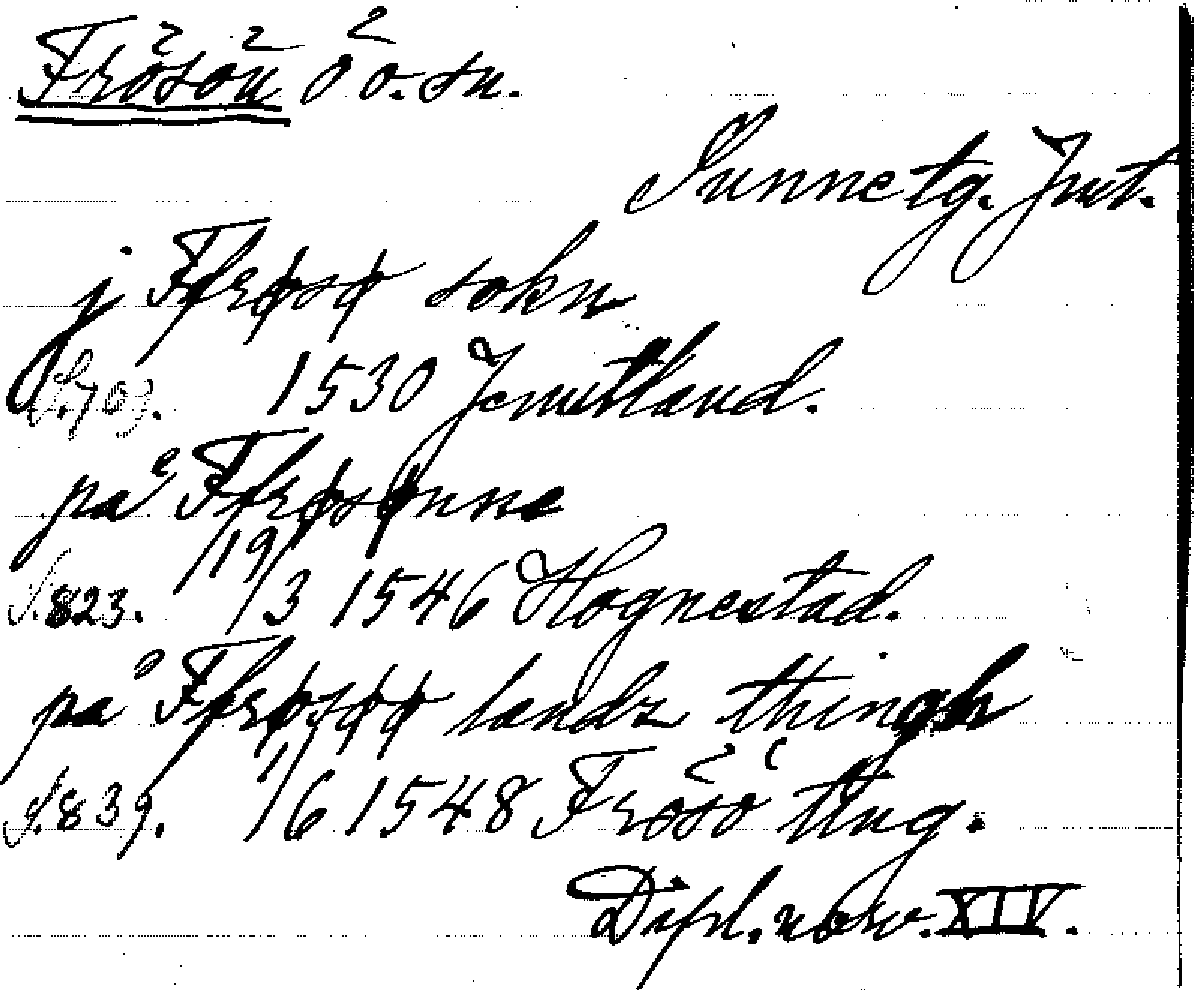 Frösön ö o. sn.
Sunne tg. Jmt.
j Ffrøsø sokn
S. 703. 1530 Jemtland.
på Ffrøsønne
S. 823. 19/3 1546 Hognestad.
på Ffrøsøø landz thingh
S. 839. 1/6 1548 Frösö ting.
Dipl. norv. XIV.